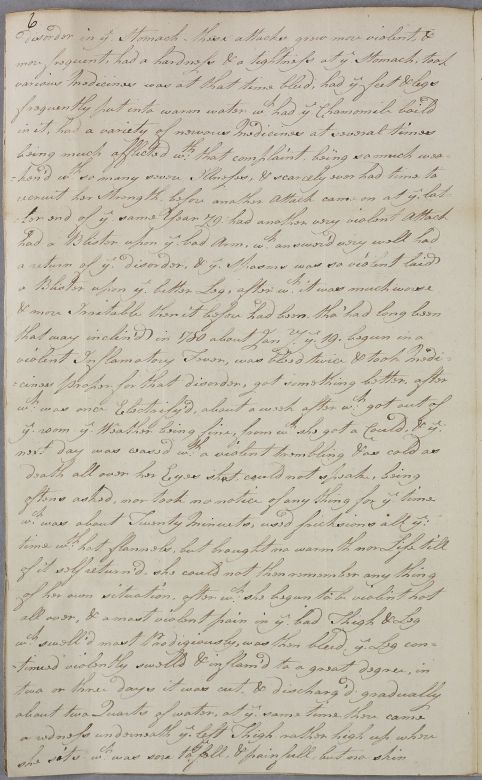 6
disorder in yͤ Stomach. these attacks grew more violent, &
more frequent, had a hardness & a tightness at yͤ Stomach, took
various Medicines was at that time bleed, had yͤ feet & legs
frequently put into warm water wͪ had yͤ Chamomile boild
in it, had a variety of nervous Medicines at several times
being much afflicted wͭͪ that complaint. being so much wea-
-ken'd wͭͪ so many severe Illnesses, & scarcely ever had time to
recruit her strength before another Attack came on at yͤ lat-
-ter end of yͤ same Year 79 had another very violent Attack
had a Blister upon yͤ bad Arm, wͪ answerd very well had
a return of yͤ disorder, & yͤ Spasms was so violent laid
a Blister upon yͤ better Leg, after wͪ it was much worse
& more Irritable then it before had been tho had long been
that way inclin'd in 1780 about Janʳʸ yͤ 19. begun in a
violent Inflamatory Fever, was bleed twice & took Medi-
-cines proper for that disorder, got something better, after
wͪ was once Electrify'd, about a week after wͪ got out of
yͤ room yͤ Weather being fine, from wͪ she got a Could, & yͤ
next day was ceased wͭͪ a violent trembling & as cold as
death all over her Eyes shut could not speake, being
oftens asked, nor took no notice of any thing for yͤ time
wͪ was about Twenty Minuets, used fricksions all yͤ
time wͭͪ hot flannels, but brought no warmth nor Life till
of it self return'd. she could not then remember any thing
of her own situation, after wͪ she begun to be violent hot
all over, & a most violent pain in yͤ bad Thigh & Leg
wͪ swell'd most Prodigiously, was then bleed yͤ Leg con-
-tinued violently swelld & inflam'd to a great degree, in
two or three days it was cut, & discharg'd gradually
about two Quarts of water, at yͤ same time there came
a redness underneath yͤ left Thigh rather high up where
she sits wͪ was sore & painfull, but no skin